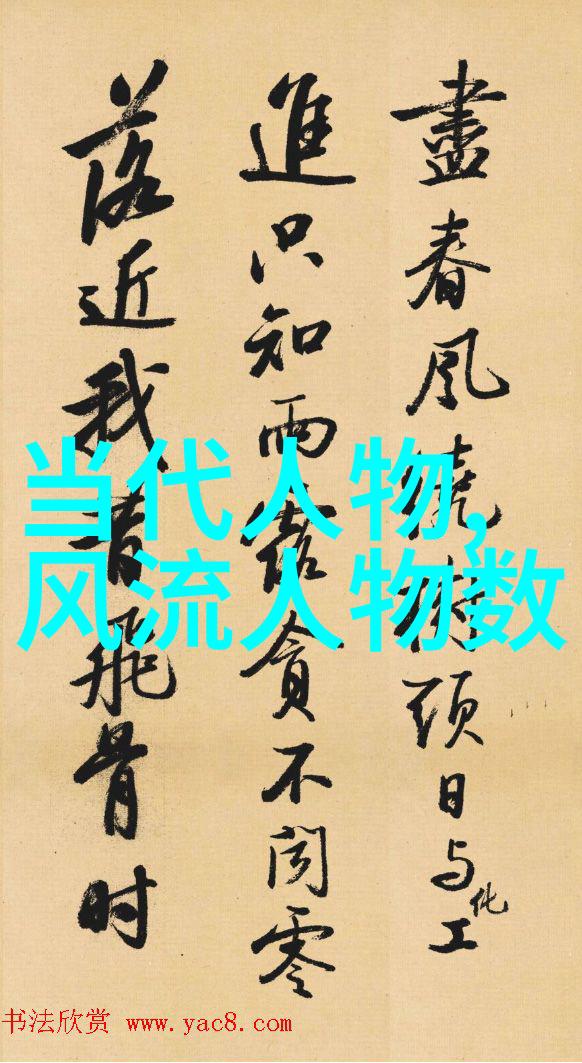 盡春風繞樹頭日与化工
進只知雨露貪不聞零
落近我昔飛骨时
当代人物,
风流人物数
书法欣赏 www.yac8.com